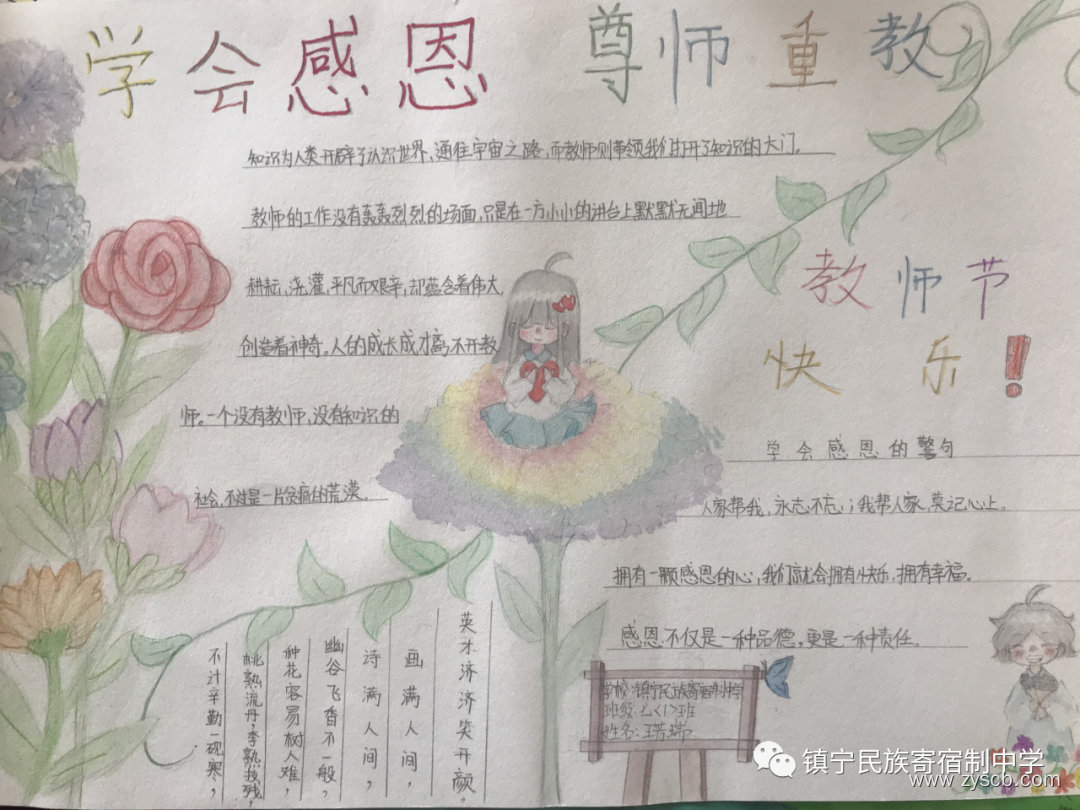 学会感恩 尊师重教
知识为人类开辟了认识世界,通往宇宙之路,而教师则带领我们打开了知识的大门。
教师的工作没有轰轰烈烈的场面,只是在一方小小的讲台上默默无闻地
耕耘,浇灌,平凡而艰辛,却蕴含着伟大,
创造着神奇。人的成长成才,离不开教
师。一个没有教师,没有知识的
社会,不过是一片贫瘠的荒漠。
教师节
快乐!
学会感恩的警句
人家帮我,永志不忘;我帮人家,莫记心上。
拥有一颗感恩的心,我们就会拥有快乐,拥有幸福。
感恩不仅是一种品德,更是一种责任。
不计辛勤一砚寒,
桃熟流丹,李熟枝残,
种花容易树人难,
幽谷飞香不一般,
诗满人间,
画满人间,
英才济济笑开颜。
学校:镇宁民族寄宿制中学
班级:七<1>班
姓名:
镇宁民族寄宿制中学
www.zyscb.com